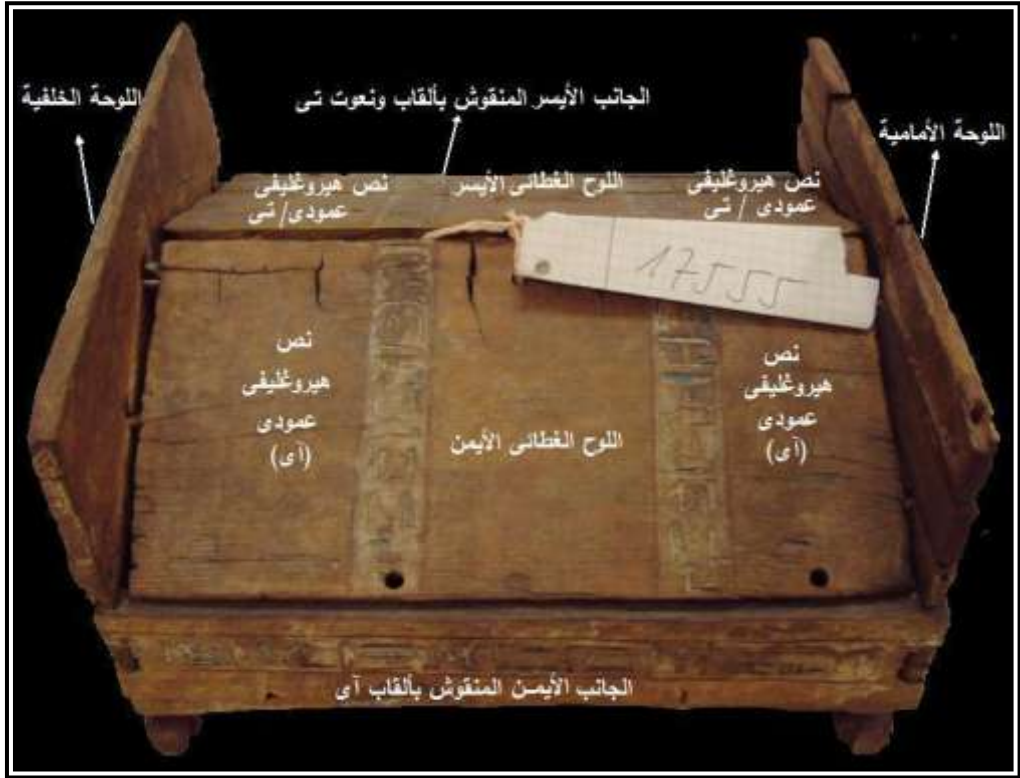 الجانب الأيسر المنقوش بألقاب ونعوت تى
اللوحة الخلفية
اللوحة الأمامية
نص هيروغليفى
عمودى/ تى
اللوح الغطائى الأيسر
نص هيروغليفى
عمودى / تى
17555
نص
هيروغليفى
عمودى
(آى)
اللوح الغطائى الأيمن
نص
هيروغليفى
عمودى
(آى)
الجانب الأيمـن المنقوش بألقاب آى